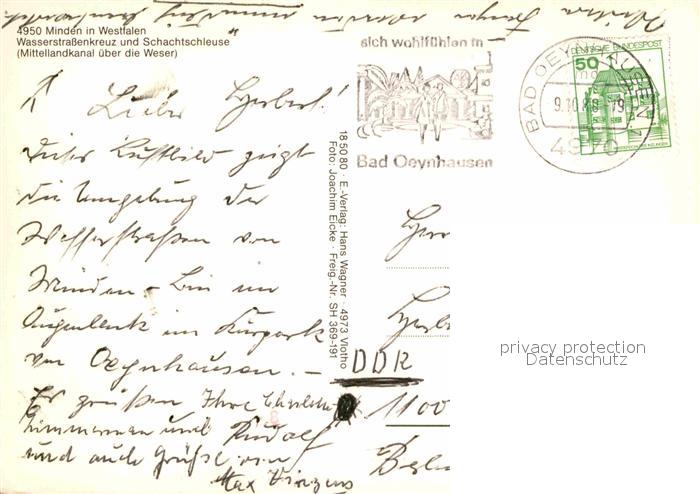 4950 Minden in Westfalen
Wasserstraßenkreuz und Schachtschleuse
(Mittellandkanal über die Weser)
sich wohlfühlen in
Bad Oeynhausen
BAD OEYNHAUSEN 1
9.10.88-
4970
DEUTSCHE BUNDESPOST
50
Lieber Herbert!
dieses Luftbild zeigt
die Umgebung der
Wasserstraßen von
Minden - bin im
Augenblick im Kurpark
von Oeynhausen. -
Es grüßen Ihre
Zimmermann und Rudolf
und auch Grüße von
Max
18 50 80 · E.-Verlag: Hans Wagner · 4973 Vlotho
Foto: Joachim Eicke · Freig.-Nr. SH 369-191
Herr
Herb
DDR
1100
Berli
privacy protection
Datenschutz